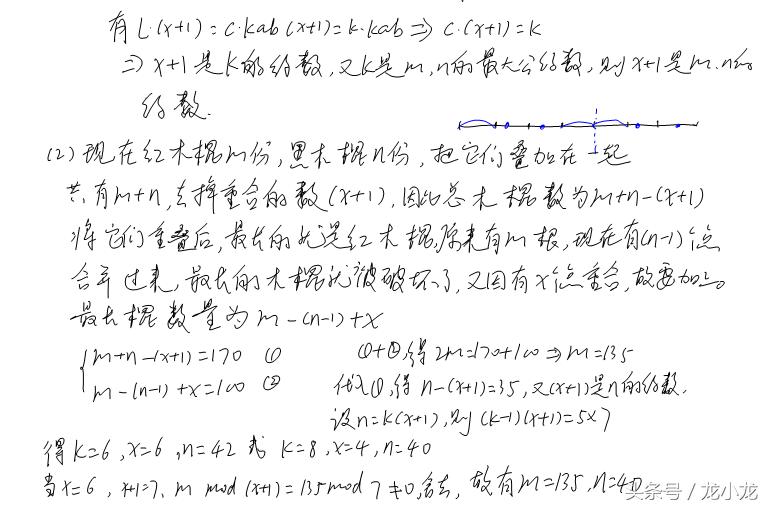 有 L·(x+1)=c·kab(x+1)=k·kab⇒c·(x+1)=k
⇒x+1是k的约数,又k是m,n的最大公约数,则x+1是m.n的
约数.
(2)现在红木棍m份,黑木棍n份,把它们叠加在一起
共有m+n,去掉重合的数(x+1),因此总木棍数为m+n-(x+1)
将它们重叠后,最长的就是红木棍,原来有m根,现在有(n-1)个点
合并过来,最长的木棍就被破坏了,又因有x个点重合,故要加上。
最长棍数量为m-(n-1)+x
m+n-(x+1)=170 ① ①+②,得2m=170+100⇒m=135
m-(n-1)+x=100 ② 代入①,得n-(x+1)=35,又(x+1)是n的约数.
设n=k(x+1),则(k-1)(x+1)=5×7
得k=6,x=6,n=42或k=8,x=4,n=40
当x=6,x+1=7,m mod(x+1)=135mod7≠0,舍去,故有m=135,n=40
头条号/龙小龙